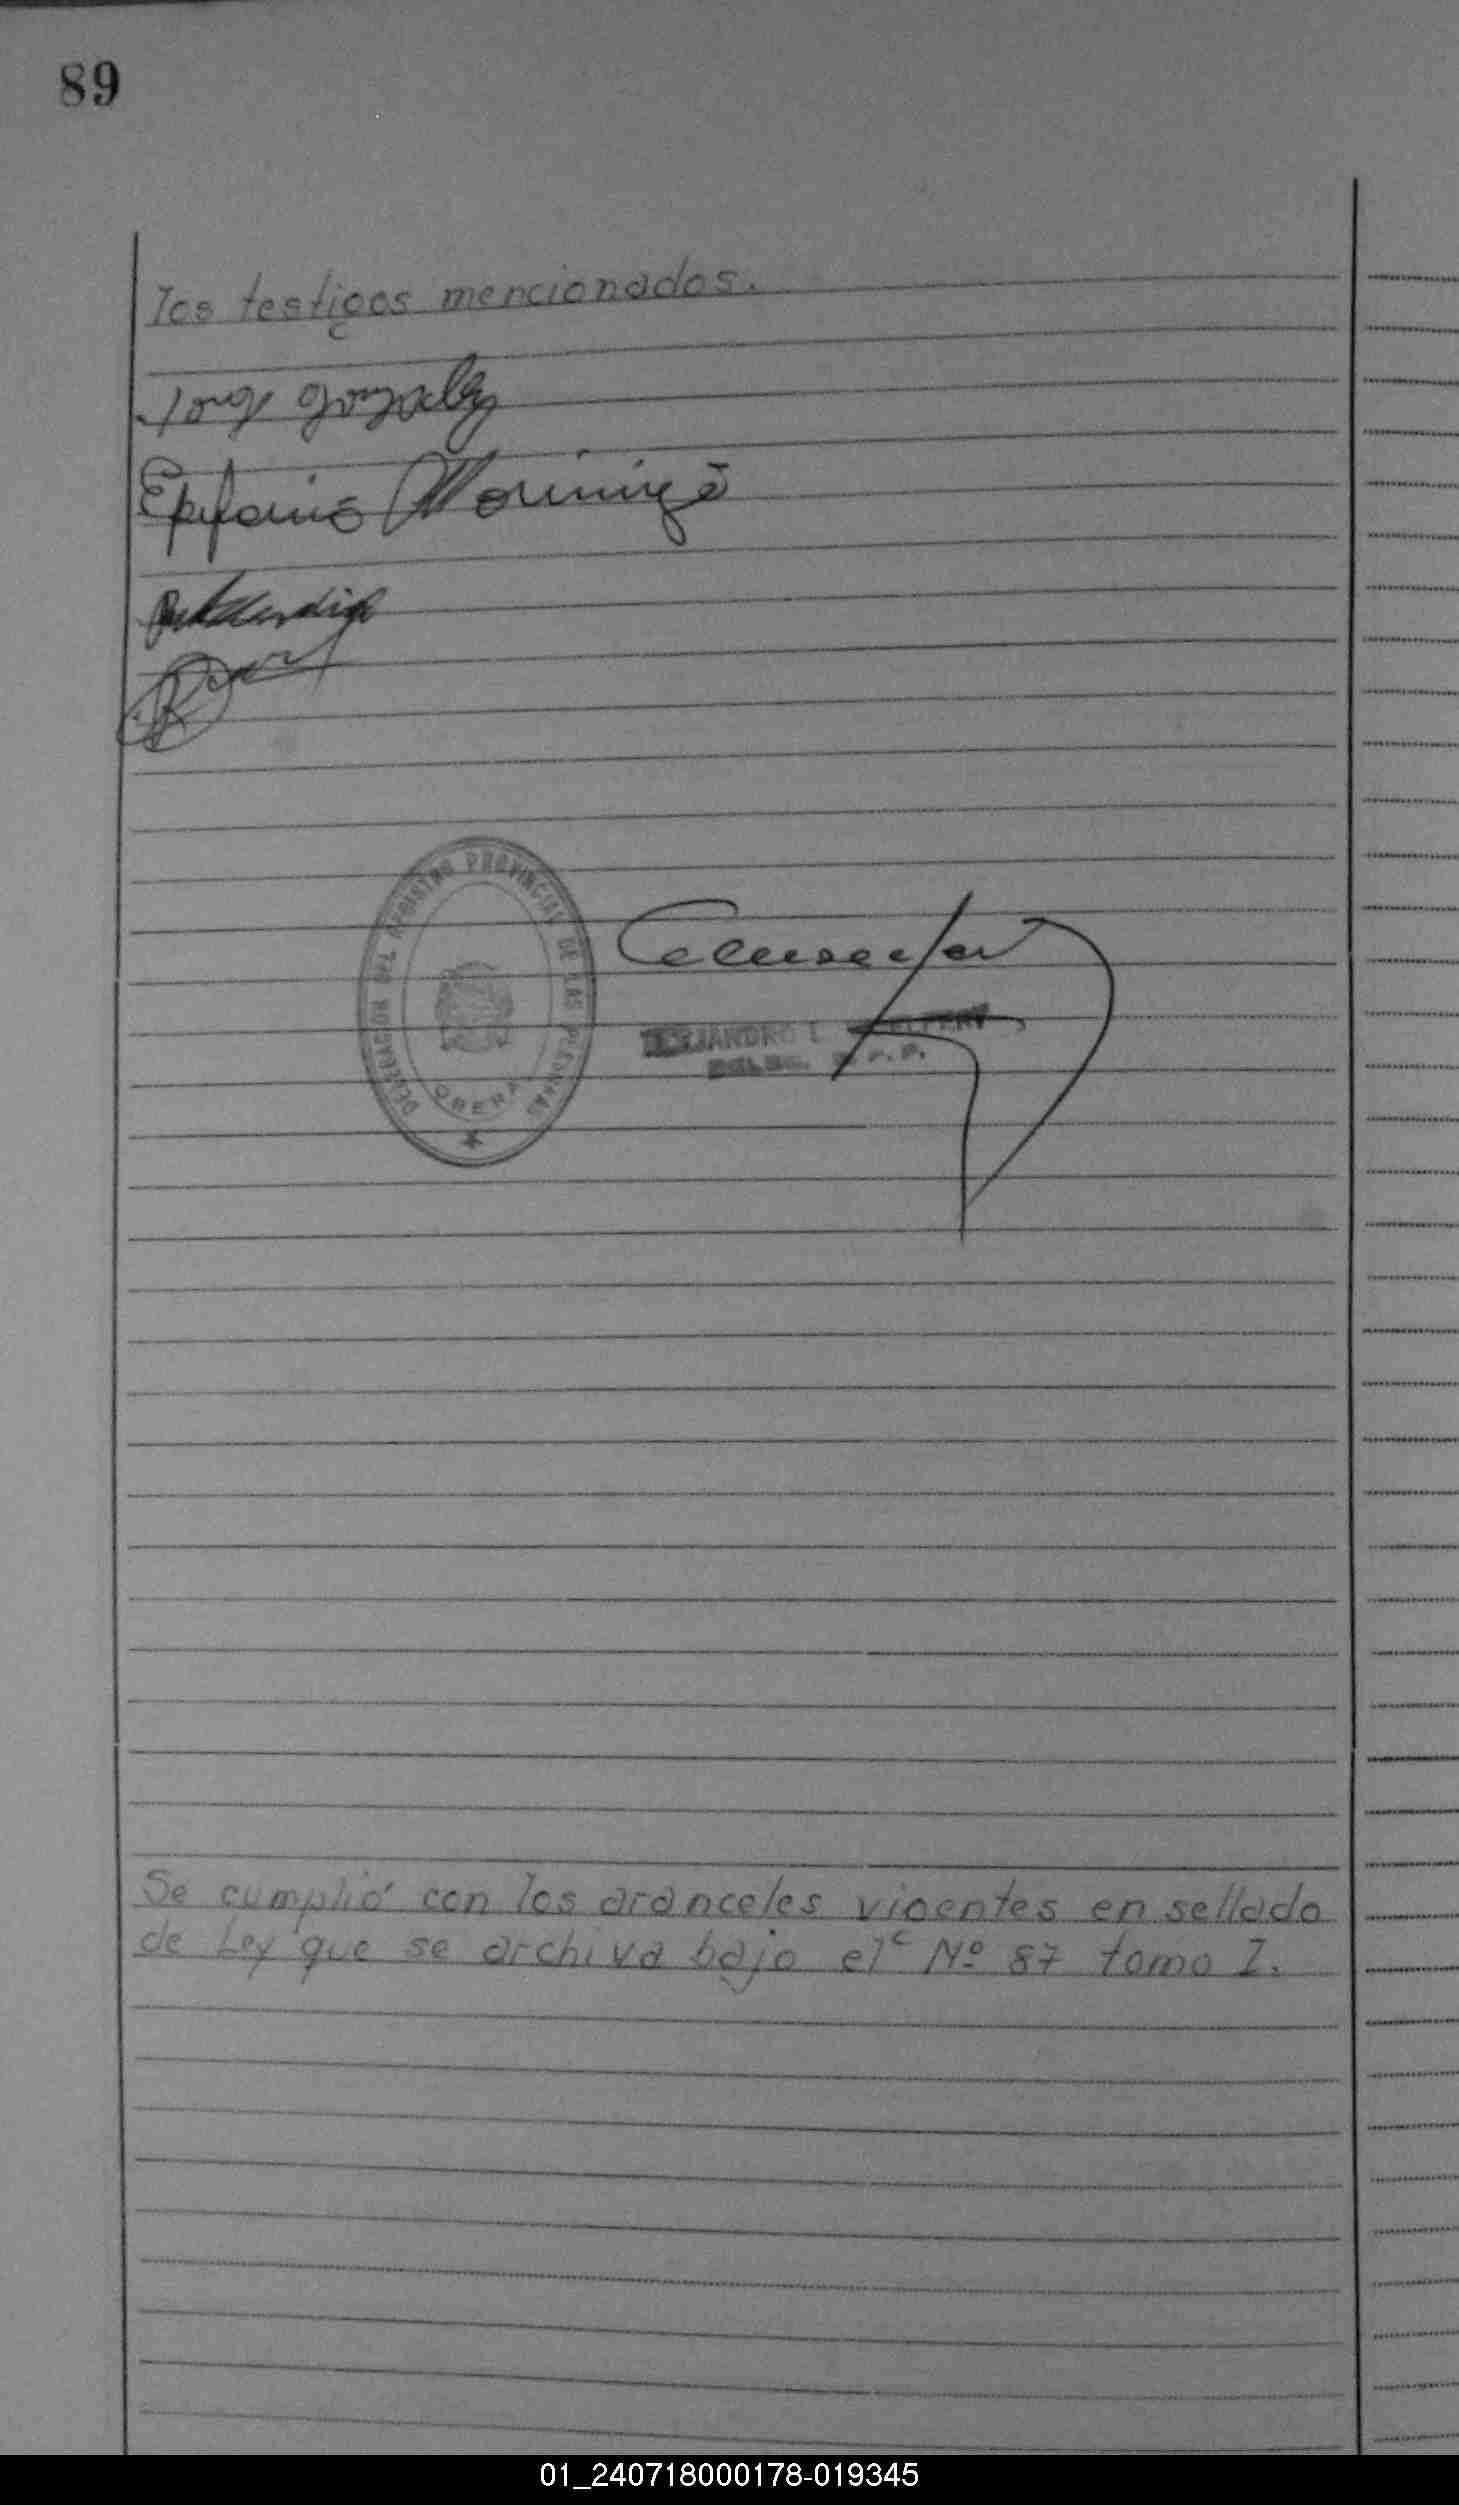 89
los testigos mencionados.
Epifanio Morinigo
DELEGACION DEL REGISTRO PROVINCIAL DE LAS PERSONAS
OBERA
Se cumplió con los aranceles vigentes en sellado
de Ley que se archiva bajo el Nº 87 tomo I.
01_240718000178-019345